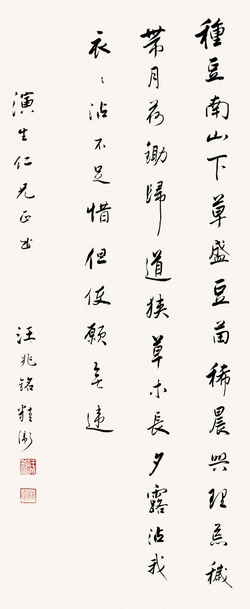 種豆南山下草盛豆苗稀晨興理荒穢
帶月荷鋤歸道狹草木長夕露沾我
衣〻沾不足惜但使願無違
演生仁兄正书
汪兆銘精衛